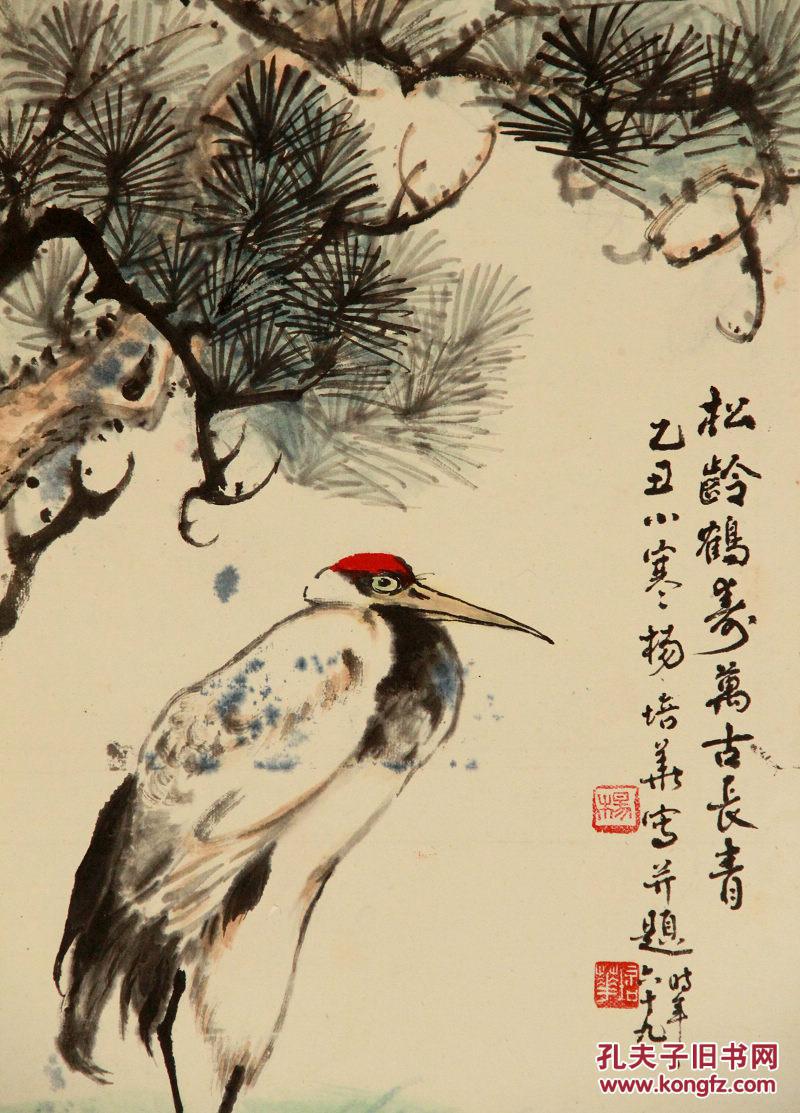 松龄鶴寿萬古長青
乙丑小寒楊培華寫并題
时年六十九
楊
培華
孔夫子旧书网
www.kongfz.com